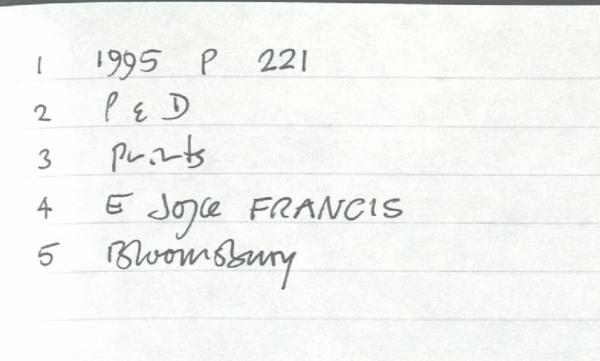 1 1995 P 221
2 P & D
3 Prints
4 E Joyce FRANCIS
5 Bloomsbury